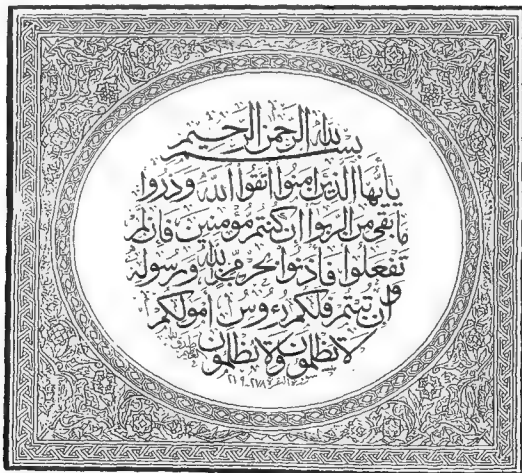 بسم الله الرحمن الرحيم
يا أيها الذين امنوا اتقوا الله وذروا
ما بقي من الربوا ان كنتم مؤمنين فإن لم
تفعلوا فأذنوا بحرب من الله ورسوله
وان تبتم فلكم رءوس أمولكم
لا تظلمون ولا تظلمون